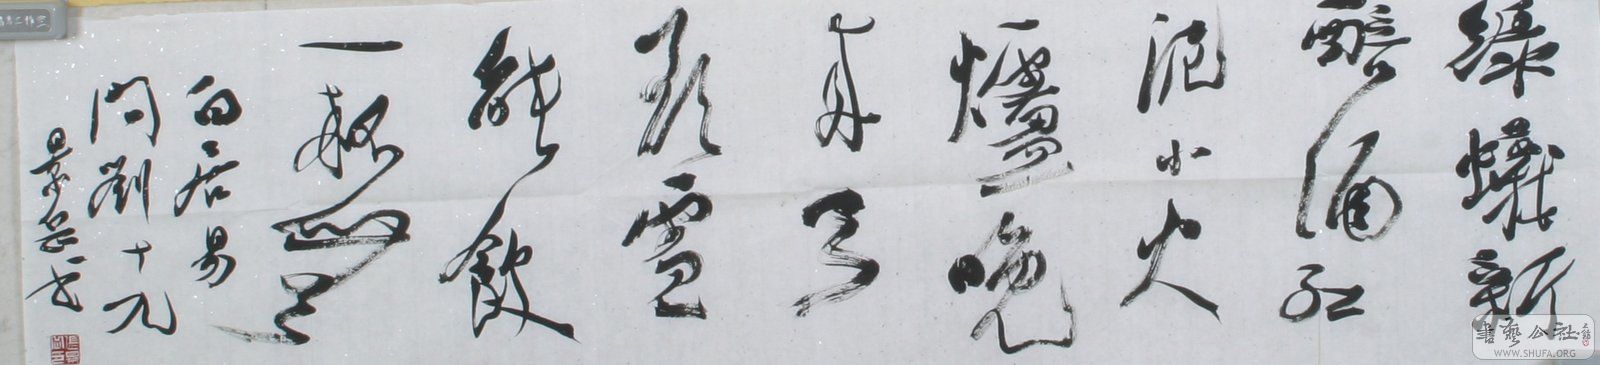 綠蟻新
醅酒紅
泥小火
爐晚
來天
欲雪
能飲
一杯無
白居易
問劉十九
景岳书
書藝公社
WWW.SHUFA.ORG